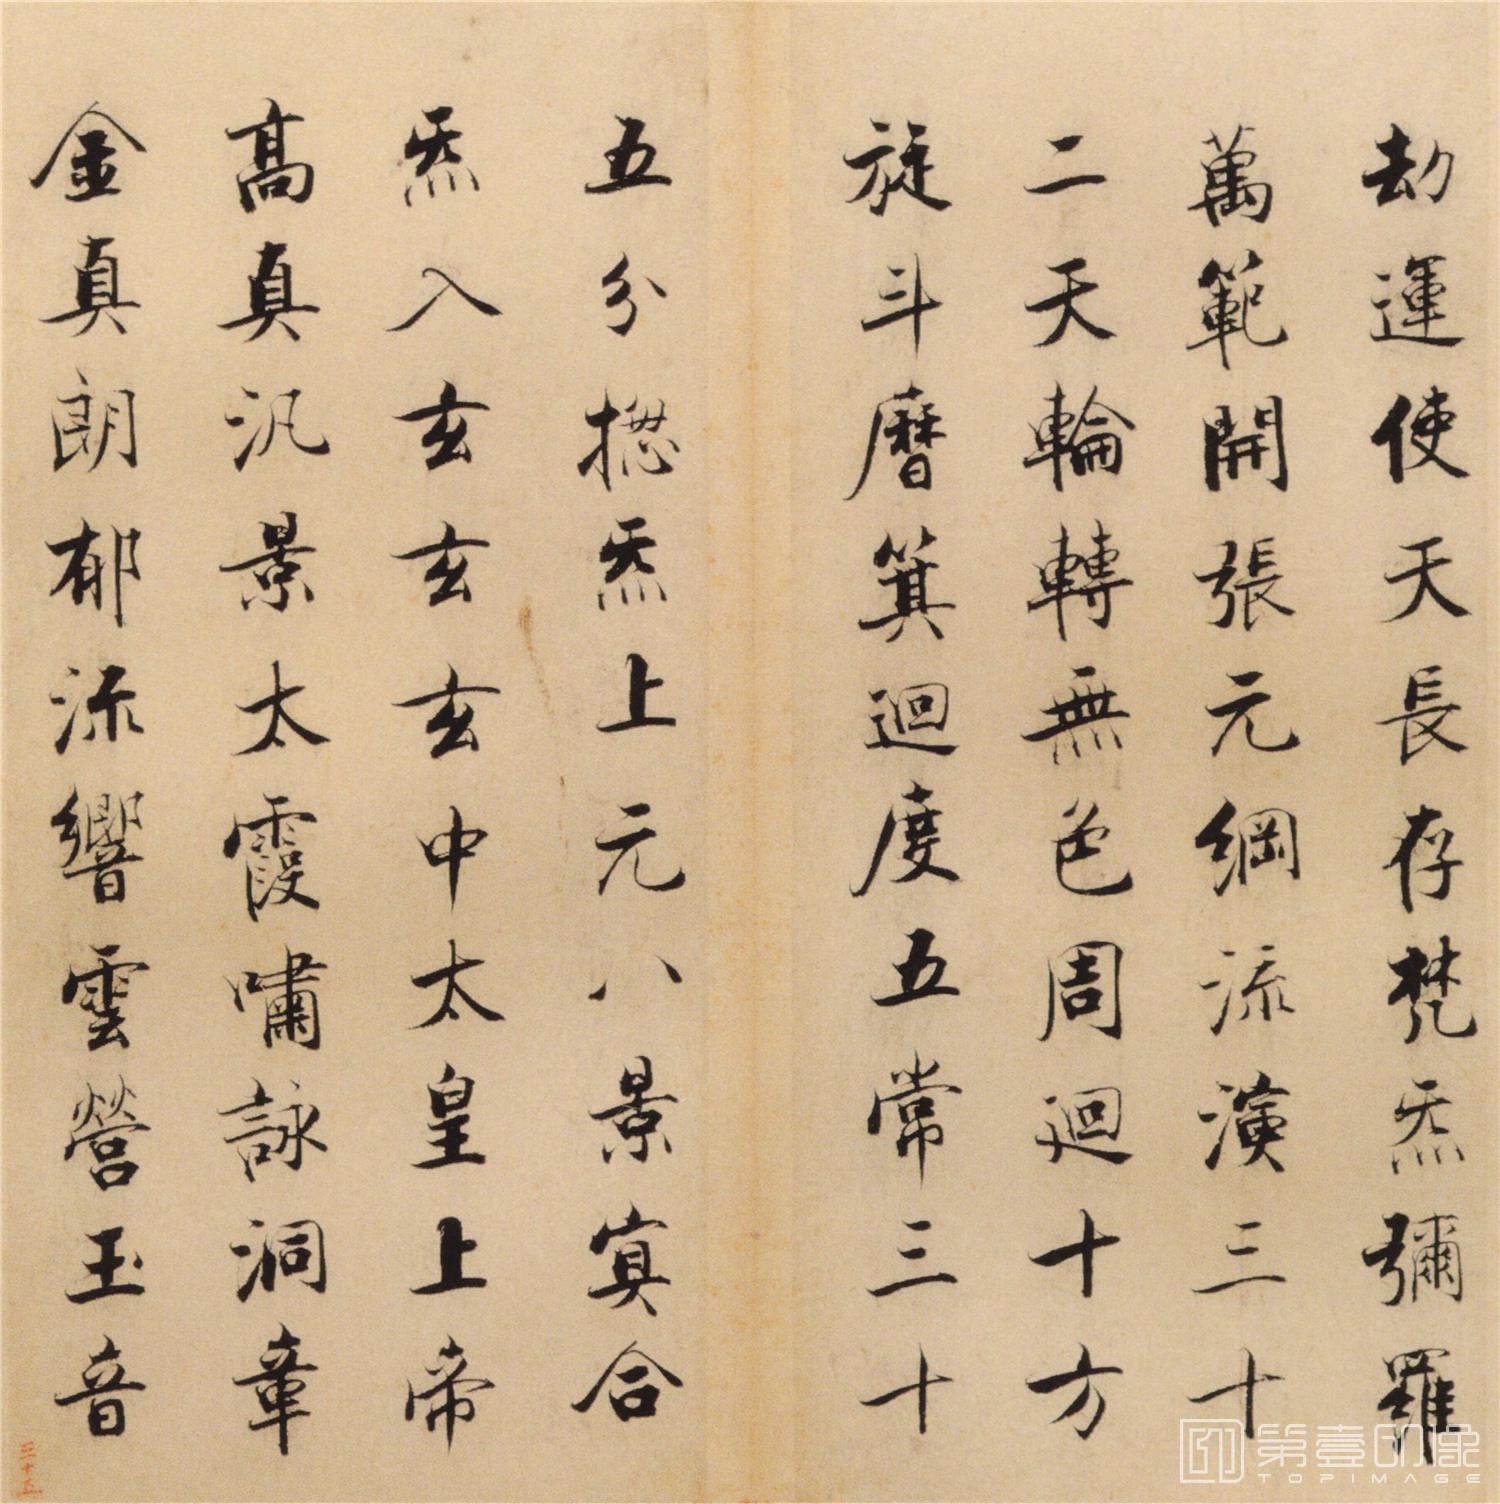 劫運使天長存梵炁彌羅
萬範開張元綱流演三十
二天輪轉無色周迴十方
旋斗曆箕迴度五常三十
五分揔炁上元八景冥合
炁入玄玄玄中太皇上帝
高真汎景太霞嘯詠洞章
金真朗郁流響雲營玉音
三十五
第壹印象
TOPIMAGE